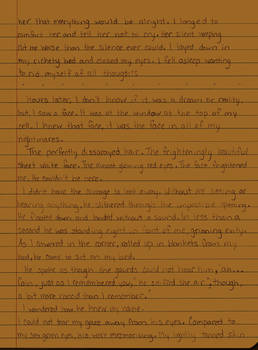 her that everything would be alright. I longed to
comfort her and tell her not to cry. Her silent weeping
me worse than the silence ever could. I layed down in
my rickety bed and closed my eyes. I fell asleep wanting
to rid myself of all thoughts
Hours later, I don't know if it was a dream or reality,
but I saw a face. It was at the window at the top of my
cell. I knew that face, it was the face in all of my
nightmares.
The perfectly dissarayed hair. The frighteningly beautiful
sheet white face. The almost glowing red eyes. The face frightened
me. He couldn't be here.
I didn't have the courage to look away. Without me seeing or
hearing anything, he slithered through the impossible opening.
He flipped down and landed without a sound. In less than a
second he was standing right in front of me, grinning
As I cowered in the corner, rolled up in blankets from my
bed, he came to sit on my bed.
He spoke as though the guards could not hear him,
just as I remembered you," he sniffed the air, "though,
a bit more scared than I remember."
I wondered how he knew my name.
I could not tear my gaze away from his eyes. Compared to
my sea green eyes, his were mesmerizing. My tanned skin